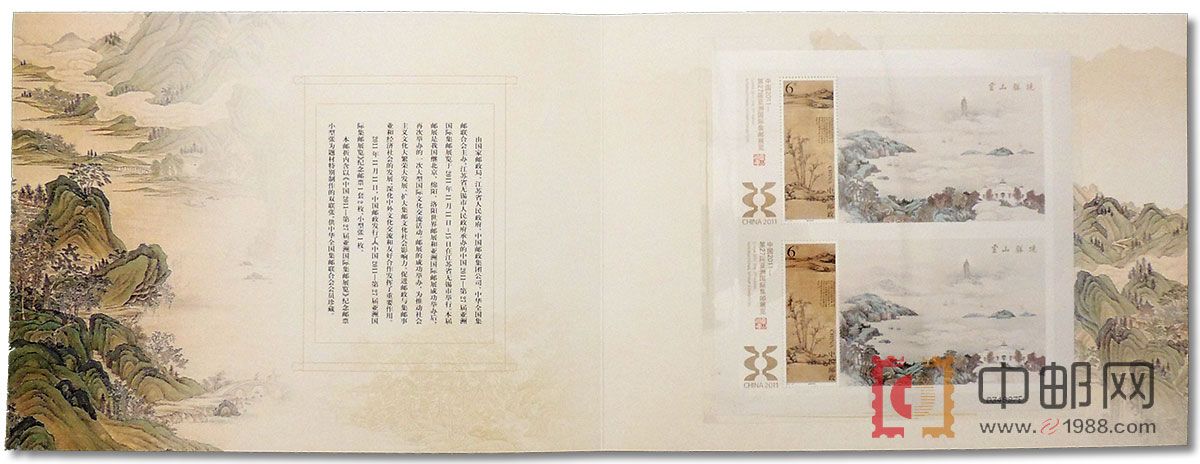 由国家邮政局、江苏省人民政府、中国邮政集团公司、中华全国集
邮联合会主办，江苏省无锡市人民政府承办的中国2011—第27届亚洲
国际集邮展览于2011年11月11日—15日在江苏省无锡市举行。本届
邮展是我国继北京、绵阳、洛阳世界邮展和亚洲国际邮展成功举办后，
再次举办的一次大型国际文化交流活动。邮展的成功举办，为推动社会
主义文化大繁荣大发展，扩大集邮文化社会影响力，促进邮政与集邮事
业和经济社会的发展，深化中外文化交流和友好合作发挥了重要作用。
2011年11月11日，中国邮政发行了《中国2011—第27届亚洲国
际集邮展览》纪念邮票1套2枚，小型张1枚。
本邮折内含以《中国2011—第27届亚洲国际集邮展览》纪念邮票
小型张为题材特别制作的双联张，供中华全国集邮联合会会员珍藏。
中国2011—
第27届亚洲国际集邮展览
CHINA 2011
6
云山胜境
中国2011—
第27届亚洲国际集邮展览
CHINA 2011
6
云山胜境
中邮网
www.e1988.com